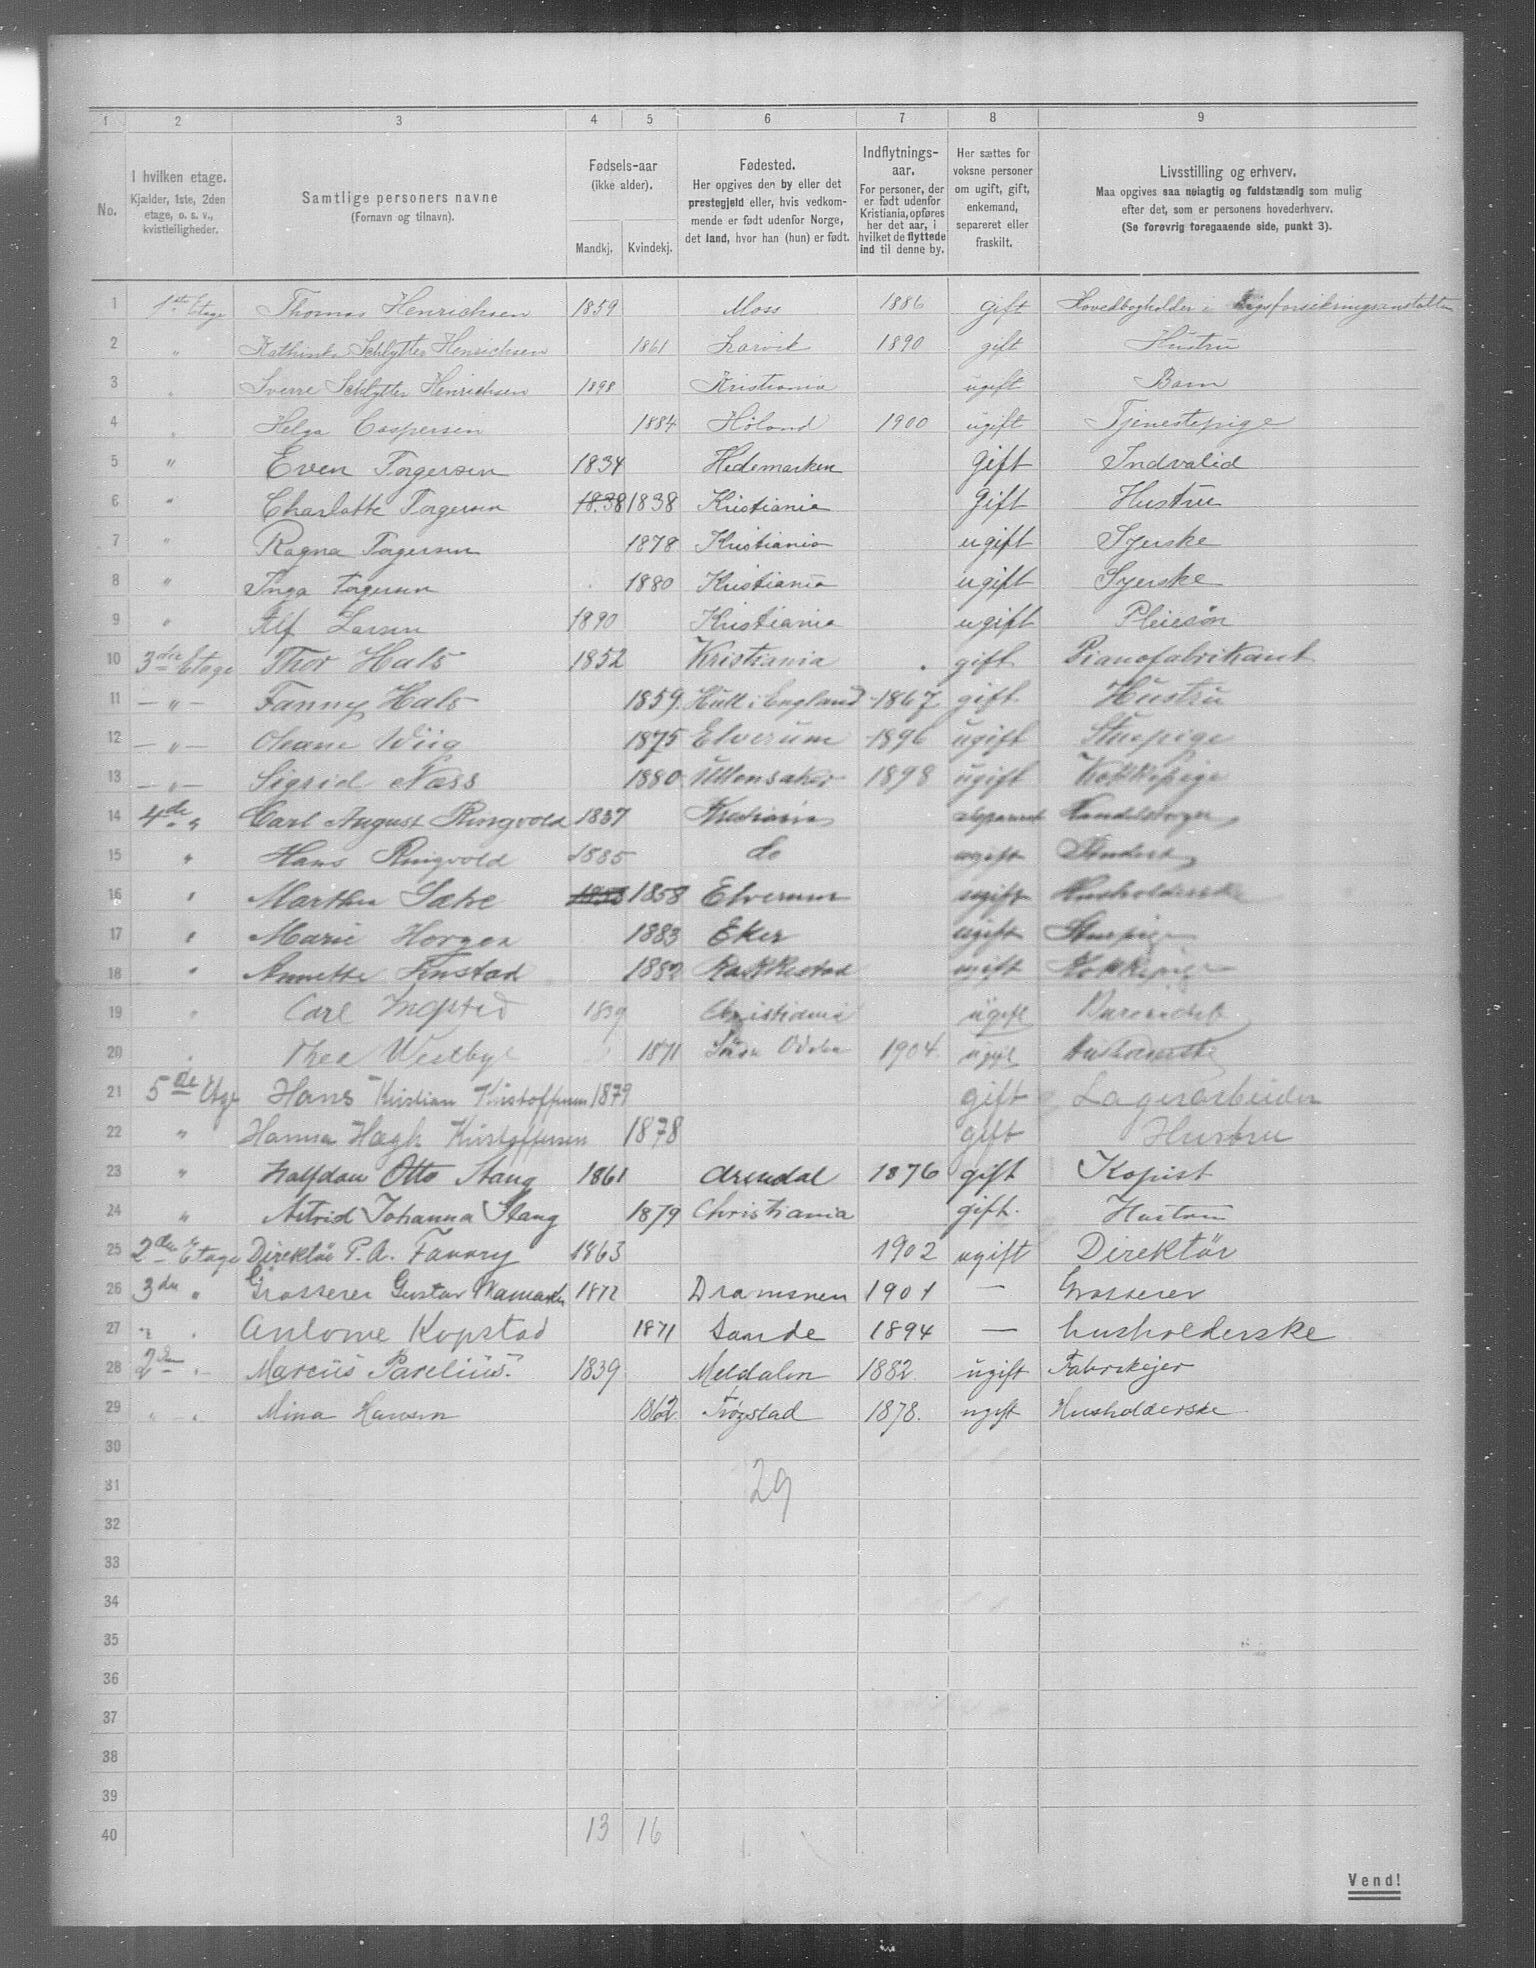 1 2 3 4 5 6 7 8 9
No.
I hvilken etage.
Kjælder, 1ste, 2den
etage, o. s. v.,
kvistleiligheder.
Samtlige personers navne
(Fornavn og tilnavn).
Fødsels-aar
(ikke alder).
Mandkj. Kvindekj.
Fødested.
Her opgives den by eller det
prestegjeld eller, hvis vedkom-
mende er født udenfor Norge,
det land, hvor han (hun) er født.
Indflytnings-
aar.
For personer, der
er født udenfor
Kristiania, opføres
her det aar, i
hvilket de flyttede
ind til denne by.
Her sættes for
voksne personer
om ugift, gift,
enkemand,
separeret eller
fraskilt.
Livsstilling og erhverv.
Maa opgives saa nøiagtig og fuldstændig som mulig
efter det, som er personens hovederhverv.
(Se forøvrig foregaaende side, punkt 3).
1 1ste Etage Thomas Henrichsen 1859 Moss 1886 gift Hovedbogholder i Rigsforsikringsanstalten
2 " Kathinka Schlytter Henrichsen 1861 Larvik 1890 gift Hustru
3 " Sverre Schlytter Henrichsen 1898 Kristiania ugift Barn
4 " Helga Caspersen 1884 Høland 1900 ugift Tjenestepige
5 " Even Torgersen 1834 Hedemarken gift Indvalid
6 " Charlotte Torgersen 1838 1838 Kristiania gift Hustru
7 " Ragna Torgersen 1878 Kristiania ugift Syerske
8 " Inga Torgersen 1880 Kristiania ugift Syerske
9 " Alf Larsen 1890 Kristiania ugift Pleiesøn
10 3die Etage Thor Hals 1852 Kristiania gift Pianofabrikant
11 — " — Fanny Hals 1859 Hull i England 1867 gift Hustru
12 — " — Oleane Wiig 1875 Elverum 1896 ugift Stuepige
13 — " — Sigrid Næss 1880 Ullensaker 1898 ugift Kokkepige
14 4de " Carl August Ringvold 1837 Kristiania separeret Handelsborger
15 " Hans Ringvold 1885 do ugift Student
16 " Marthe Sæke 1858 Elverum ugift Husholderske
17 " Marie Horgen 1883 Eker ugift Stuepige
18 " Annette Finstad 1882 Rakkestad ugift Kokkepige
19 " Carl Ingstad 1839 Christiania ugift
20 " Thea Westbye 1871 Søndre Odalen 1904 ugift Husholderske
21 5de Etage Hans Kristian Kristoffersen 1879 gift Lagerarbeider
22 " Hanna Hægh Kristoffersen 1878 gift Hustru
23 " Halfdan Otto Stang 1861 Arendal 1876 gift Kopist
24 " Astrid Johanna Stang 1879 Christiania gift. Hustru
25 2den Etage Direktör P. A. Favory 1863 1902 ugift Direktör
26 3die " Grosserer Gustav 1872 Dramsnen 1901 — Grosserer
27 " " Antonie Kopstad 1871 Sande 1894 — husholderske
28 2den " Marcus Parelius. 1839 Meldalen 1882 ugift Fabrikejer
29 " — " Mina Hansen 1862 Trøgstad 1878. ugift Husholderske
30
31 29
32
33
34
35
36
37
38
39
40 13 16
Vend!